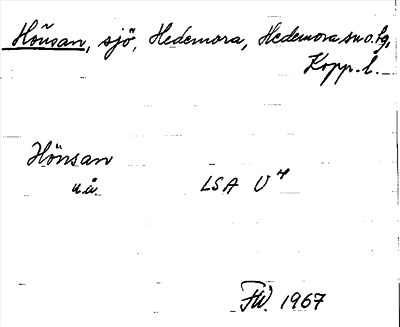 Hönsan, sjö, Hedemora, Hedemora sn o. lg,
Kopp. l.
Hönsan
u.å. LSA U 4
FW. 1967